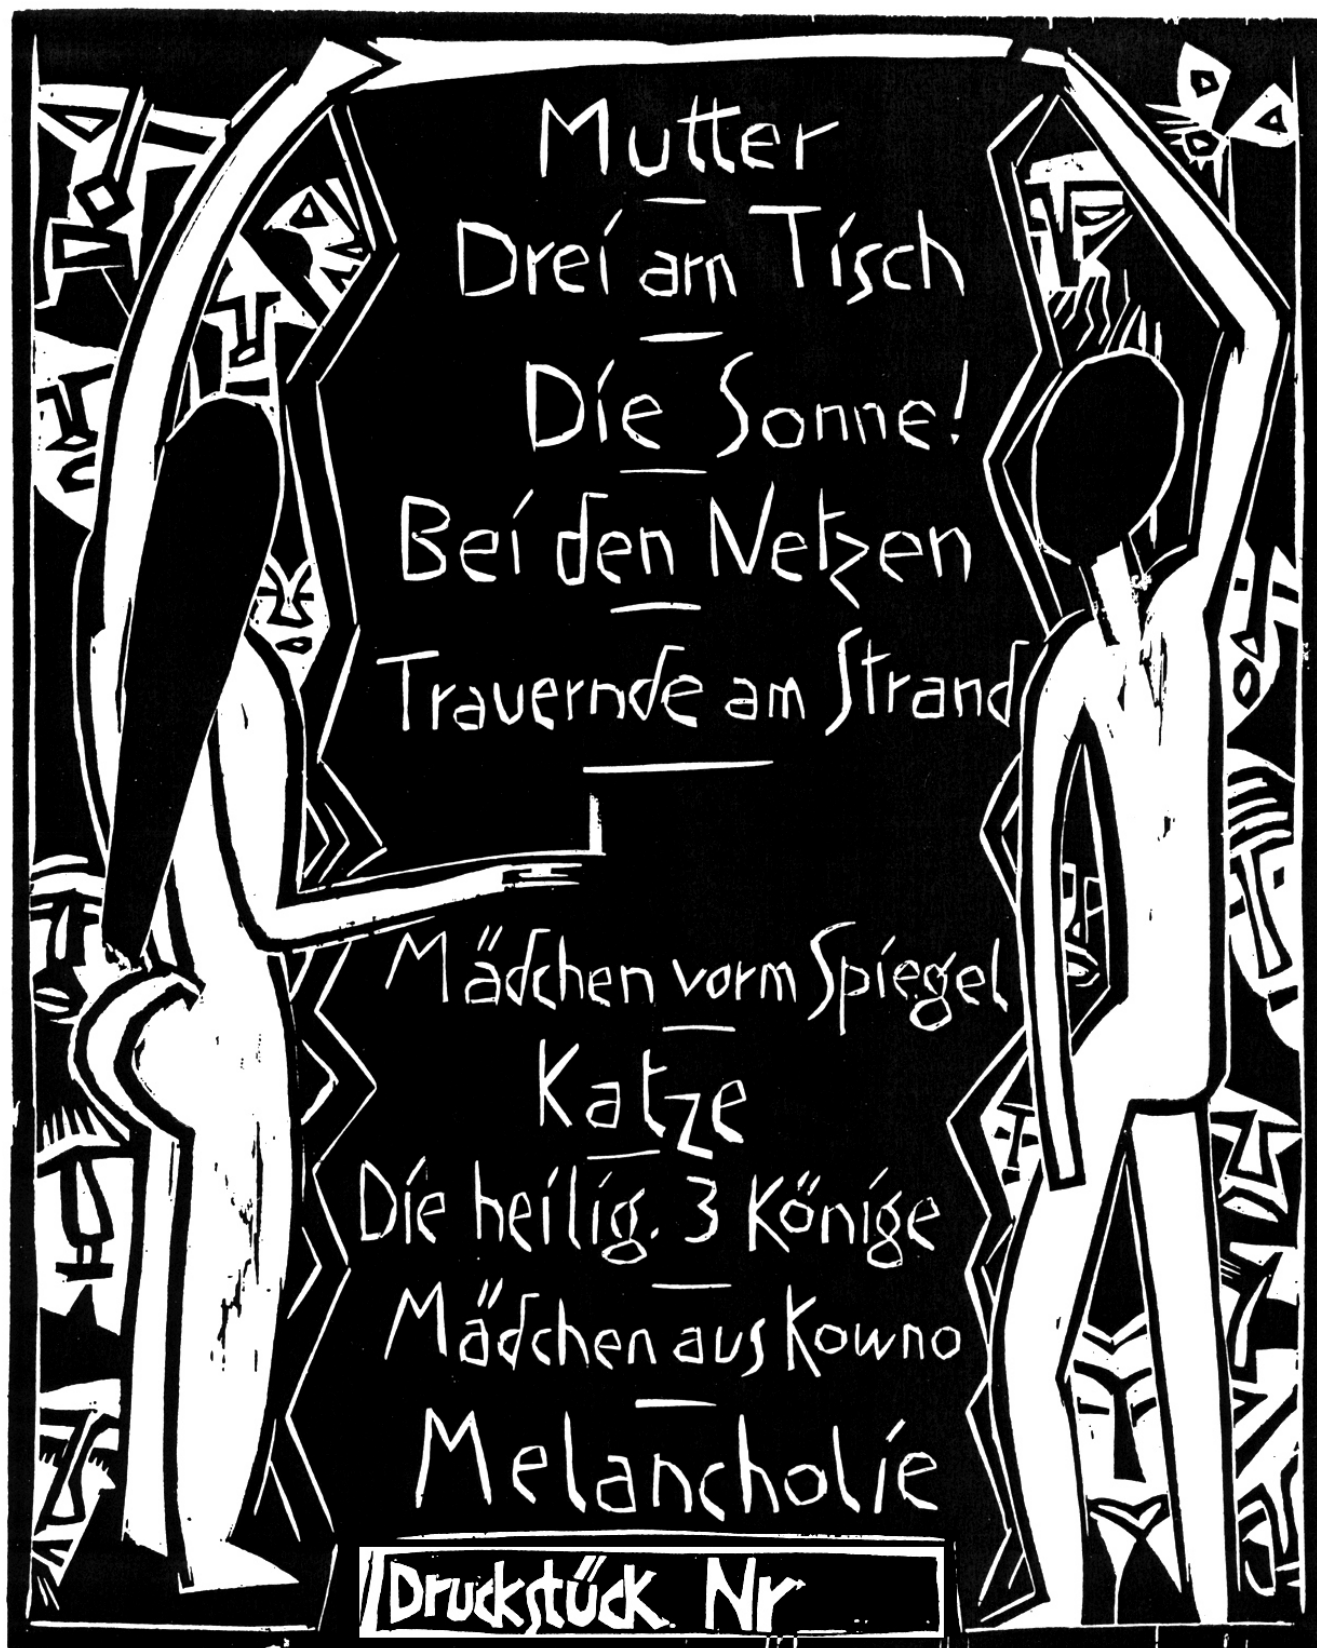 Mutter
Drei am Tisch
Die Sonne!
Bei den Netzen
Trauernde am Strand
Mädchen vorm Spiegel
Katze
Die heilig. 3 Könige
Mädchen aus Kowno
Melancholie
Druckstück Nr